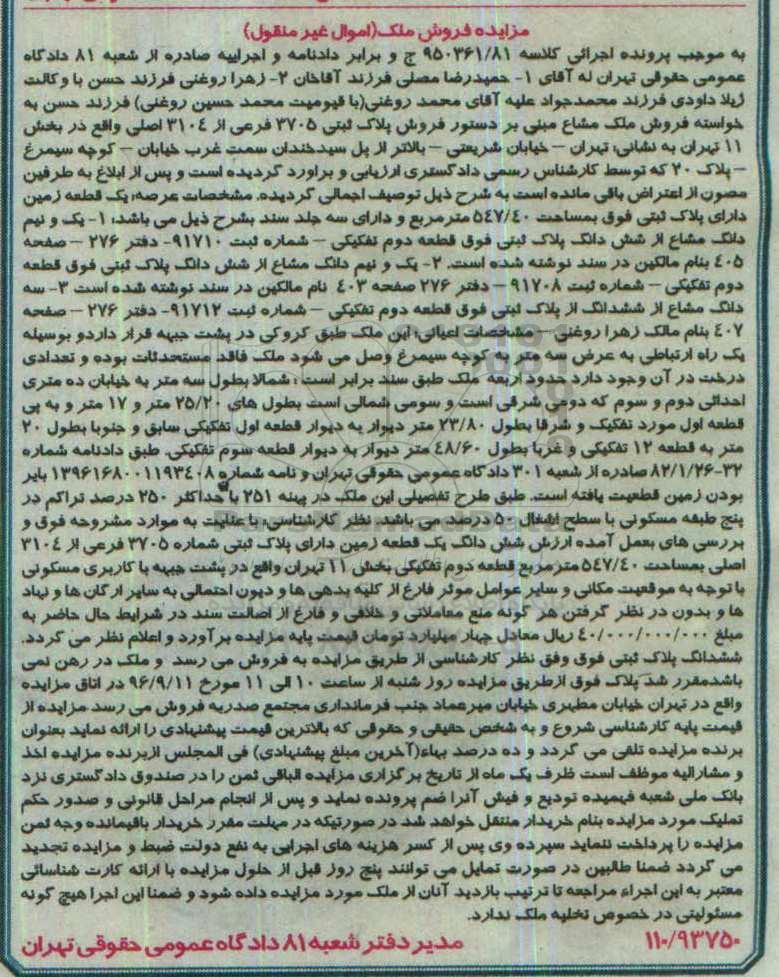 مزایده فروش ملک(اموال غیر منقول)
به موجب پرونده اجرائی کلاسه ۹۵۰۳۶۱/۸۱ ج و برابر دادنامه و اجراییه صادره از شعبه ۸۱ دادگاه
عمومی حقوقی تهران له آقای ۱- حمیدرضا مصلی فرزند آقاخان ۲- زهرا روغنی فرزند حسن با وکالت
ژیلا داودی فرزند محمدجواد علیه آقای محمد روغنی(با قیومیت محمد حسین روغنی) فرزند حسن به
خواسته فروش ملک مشاع مبنی بر دستور فروش پلاک ثبتی ۳۷۰۵ فرعی از ۳۱۰٤ اصلی واقع در بخش
۱۱ تهران به نشانی: تهران – خیابان شریعتی – بالاتر از پل سیدخندان سمت غرب خیابان – کوچه سیمرغ
– پلاک ۲۰ که توسط کارشناس رسمی دادگستری ارزیابی و براورد گردیده است و پس از ابلاغ به طرفین
مصون از اعتراض باقی مانده است به شرح ذیل توصیف اجمالی گردیده. مشخصات عرصه: یک قطعه زمین
دارای پلاک ثبتی فوق بمساحت ۵٤۷/٤۰ مترمربع و دارای سه جلد سند بشرح ذیل می باشد: ۱- یک و نیم
دانگ مشاع از شش دانگ پلاک ثبتی فوق قطعه دوم تفکیکی – شماره ثبت ۹۱۷۱۰- دفتر ۲۷۶ – صفحه
٤۰۵ بنام مالکین در سند نوشته شده است. ۲- یک و نیم دانگ مشاع از شش دانگ پلاک ثبتی فوق قطعه
دوم تفکیکی – شماره ثبت ۹۱۷۰۸ – دفتر ۲۷۶ صفحه ٤۰۳ نام مالکین در سند نوشته شده است ۳- سه
دانگ مشاع از ششدانگ از پلاک ثبتی فوق قطعه دوم تفکیکی – شماره ثبت ۹۱۷۱۲- دفتر ۲۷۶ – صفحه
٤۰۷ بنام مالک زهرا روغنی – مشخصات اعیانی: این ملک طبق کروکی در پشت جبهه قرار داردو بوسیله
یک راه ارتباطی به عرض سه متر به کوچه سیمرغ وصل می شود ملک فاقد مستحدثات بوده و تعدادی
درخت در آن وجود دارد حدود اربعه ملک طبق سند برابر است : شمالا بطول سه متر به خیابان ده متری
احداثی دوم و سوم که دومی شرقی است و سومی شمالی است بطول های ۲۵/۲۰ متر و ۱۷ متر و به پی
قطعه اول مورد تفکیک و شرقا بطول ۲۳/۸۰ متر دیوار به دیوار قطعه اول تفکیکی سابق و جنوبا بطول ۲۰
متر به قطعه ۱۲ تفکیکی و غربا بطول ٤۸/۶۰ متر دیوار به دیوار قطعه سوم تفکیکی. طبق دادنامه شماره
۸۲/۱/۲۶-۳۲ صادره از شعبه ۳۰۱ دادگاه عمومی حقوقی تهران و نامه شماره ۱۳۹۶۱۶۸۰۰۱۱۹۳٤۰۸ بایر
بودن زمین قطعیت یافته است. طبق طرح تفصیلی این ملک در پهنه ۲۵۱ با حداکثر ۲۵۰ درصد تراکم در
پنج طبقه مسکونی با سطح اشغال ۵۰ درصد می باشد. نظر کارشناسی: با عنایت به موارد مشروحه فوق و
بررسی های بعمل آمده ارزش شش دانگ یک قطعه زمین دارای پلاک ثبتی شماره ۳۷۰۵ فرعی از ۳۱۰٤
اصلی بمساحت ۵٤۷/٤۰ مترمربع قطعه دوم تفکیکی بخش ۱۱ تهران واقع در پشت جبهه با کاربری مسکونی
با توجه به موقعیت مکانی و سایر عوامل موثر فارغ از کلیه بدهی ها و دیون احتمالی به سایر ارگان ها و نهاد
ها و بدون در نظر گرفتن هر گونه منع معاملاتی و خلافی و فارغ از اصالت سند در شرایط حال حاضر به
مبلغ ٤۰/۰۰۰/۰۰۰/۰۰۰ ریال معادل چهار میلیارد تومان قیمت پایه مزایده برآورد و اعلام نظر می گردد.
ششدانگ پلاک ثبتی فوق وفق نظر کارشناسی از طریق مزایده به فروش می رسد و ملک در رهن نمی
باشدمقرر شد پلاک فوق ازطریق مزایده روز شنبه از ساعت ۱۰ الی ۱۱ مورخ ۹۶/۹/۱۱ در اتاق مزایده
واقع در تهران خیابان مطهری خیابان میرعماد جنب فرمانداری مجتمع صدریه فروش می رسد مزایده از
قیمت پایه کارشناسی شروع و به شخص حقیقی و حقوقی که بالاترین قیمت پیشنهادی را ارائه نماید بعنوان
برنده مزایده تلقی می گردد و ده درصد بهاء(آخرین مبلغ پیشنهادی) فی المجلس ازبرنده مزایده اخذ
و مشارالیه موظف است ظرف یک ماه از تاریخ برگزاری مزایده الباقی ثمن را در صندوق دادگستری نزد
بانک ملی شعبه فهمیده تودیع و فیش آنرا ضم پرونده نماید و پس از انجام مراحل قانونی و صدور حکم
تملیک مورد مزایده بنام خریدار منتقل خواهد شد در صورتیکه در مهلت مقرر خریدار باقیمانده وجه ثمن
مزایده را پرداخت ننماید سپرده وی پس از کسر هزینه های اجرایی به نفع دولت ضبط و مزایده تجدید
می گردد ضمنا طالبین در صورت تمایل می توانند پنج روز قبل از حلول مزایده با ارائه کارت شناسائی
معتبر به این اجراء مراجعه تا ترتیب بازدید آنان از ملک مورد مزایده داده شود و ضمنا این اجرا هیچ گونه
مسئولیتی در خصوص تخلیه ملک ندارد.
۱۱۰/۹۳۷۵۰ مدیر دفتر شعبه ۸۱ دادگاه عمومی حقوقی تهران